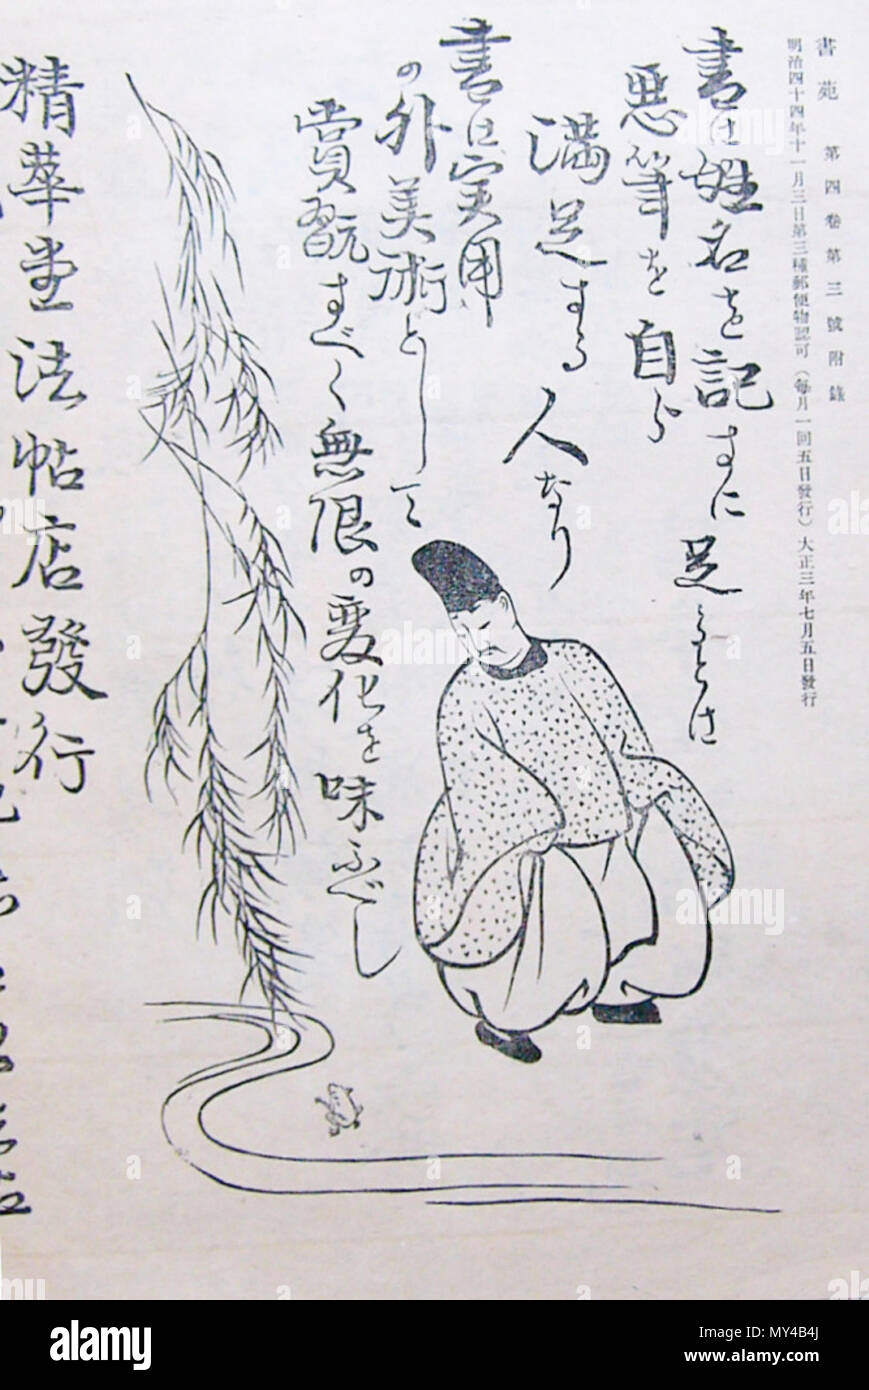 書苑 第四卷第三號附錄
明治四十四年十一月三日第三種郵便物認可(每月一回五日發行)大正三年七月五日發行
書は姓名を記するに足るとは
悪筆を自ら
満足する人なり
書は実用
の外美術として
賞翫すべく無限の変化を味ふべし
精華堂法帖店發行
alamy
Image ID: MY4B4J
www.alamy.com